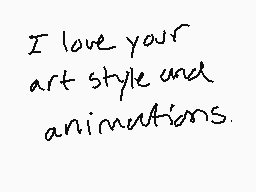 I love your
art style and
animations.